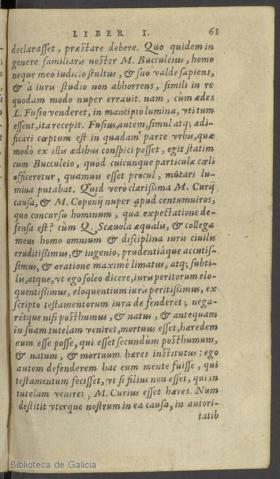 LIBER I. 61
declarasset, præstare debere. Quo quidem in
genere familiaris noster M. Bucculeius, homo
neque meo iudicio stultus, & suo valde sapiens,
& à iuris studio non abhorrens, simili in re
quodam modo nuper errauit. nam, cum ædes
L. Fusio venderet, in mancipio lumina, vti tum
essent, ita recepit. Fusius, autem, simul atq; ædi-
ficari cœptum est in quadam parte vrbis, quæ
modo ex illis ædibus conspici posset, egit statim
cum Bucculeio, quòd cuicunque particulæ cœli
officeretur, quamuis esset procul, mutari lu-
mina putabat. Quid verò clarissima M. Curij
causa, & M. Coponij nuper apud centumuiros,
quo concursu hominum, qua expectatione de-
fensa est? cùm Q. Scæuola æqualis, & collega
meus homo omnium & disciplina iuris ciuilis
eruditissimus, & ingenio, prudentiáque acutis-
simus, & oratione maximè limatus, atq; subti-
lis, atque, vt ego soleo dicere, iuris peritorum elo-
quentissimus, eloquentium iuris peritissimus, ex
scripto testamentorum iura defenderet; nega-
rétque nisi posthumus, & natus, & antequam
in suam tutelam veniret, mortuus esset, hæredem
eum esse posse, qui esset secundum posthumum,
& natum, & mortuum hæres institutus: ego
autem defenderem hac eum mente fuisse, qui
testamentum fecisset, vt si filius non esset, qui in
tutelam veniret, M. Curius esset hæres. Num
destitit vterque nostrum in ea causa, in autori-
tatib
Biblioteca de Galicia